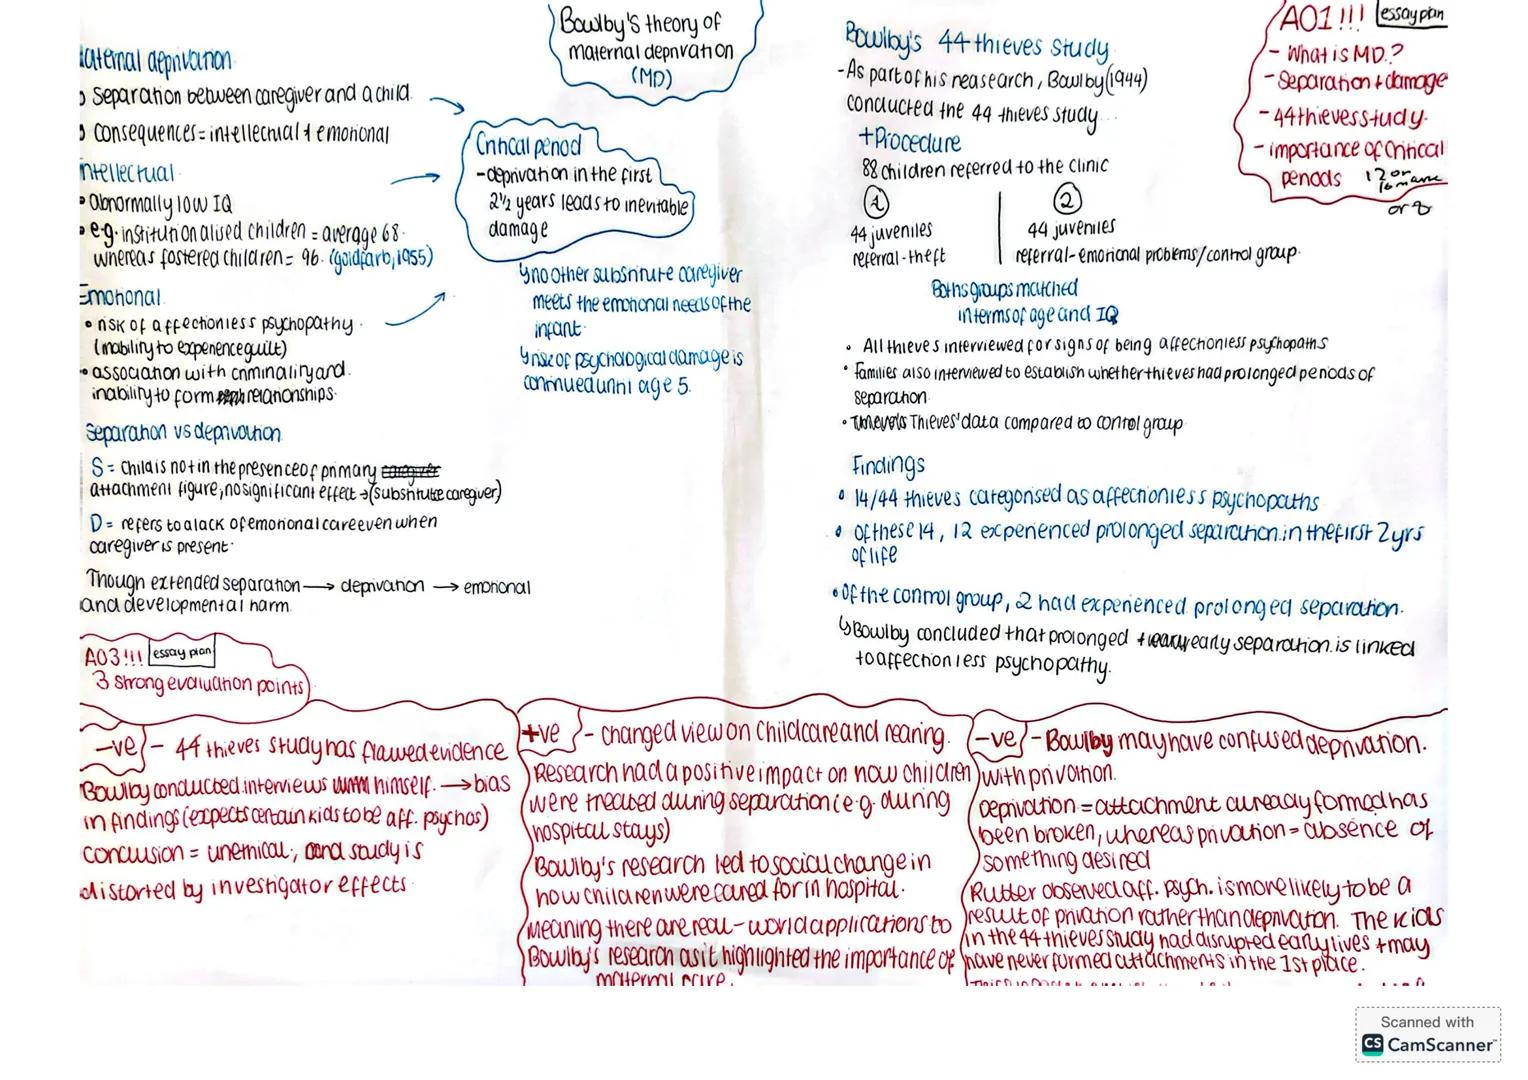 Bowlby's theory of
maternal deprivation
(MD)
Maternal deprivation
Separation between caregiver and a child.
consequences = intellectual + emotional
Intellectual
• Abnormally low IQ
• e.g. institutionalised children = average 68
whereas fostered children = 96. (goldfarb, 1955)
Emotional
• risk of affectionless psychopathy
(inability to experience guilt)
• association with criminality and
inability to form relationships.
Critical period
- deprivation in the first
2½ years leads to inevitable
damage
↳ no other substitute caregiver
meets the emotional needs of the
infant.
↳ risk of psychological damage is
continued until age 5.
Separation vs deprivation
S = Child is not in the presence of primary caregiver
attachment figure, no significant effect → (substitute caregiver)
D = refers to a lack of emotional care even when
caregiver is present.
Though extended separation → deprivation → emotional
and developmental harm.
Bowlby's 44 thieves study
- As part of his reasearch, Bowlby (1944)
conducted the 44 thieves study...
+ Procedure
88 children referred to the clinic
1
44 juveniles
referral - theft
2
44 juveniles
referral - emotional problems/control group.
Boths groups matched
in terms of age and IQ
• All thieves interviewed for signs of being affectionless psychopaths
• Families also interviewed to establish whether thieves had prolonged periods of
separation
• Thieves' data compared to control group
Findings
• 14/44 thieves categorised as affectionless psychopaths
• Of these 14, 12 experienced prolonged separation in the first 2 yrs
of life
• Of the control group, 2 had experienced prolonged separation.
↳ Bowlby concluded that prolonged + early separation is linked
to affectionless psychopathy.
AO1!!! essay plan
- What is MD?
- Separation + damage
- 44 thieves study
- importance of Critical
periods 12 or
16 mark
or 8
AO3!!! essay plan
3 strong evaluation points
-ve - 44 thieves study has flawed evidence
Bowlby conducted interviews himself. → bias
in findings (expects certain kids to be aff. psychos)
conclusion = unethical, and study is
distorted by investigator effects
+ve - changed view on Childcare and rearing.
Research had a positive impact on how children
were treated during separation (e.g. during
hospital stays)
Bowlby's research led to social change in
how children were cared for in hospital.
Meaning there are real-world applications to
Bowlby's research as it highlighted the importance of
maternal care.
-ve - Bowlby may have confused deprivation.
with privation.
Deprivation = attachment already formed has
been broken, whereas privation = absence of
something desired
Rutter observed aff. psych. is more likely to be a
result of privation rather than deprivation. The kids
in the 44 thieves study had disrupted early lives + may
have never formed attachments in the 1st place.
Scanned with
CS CamScanner